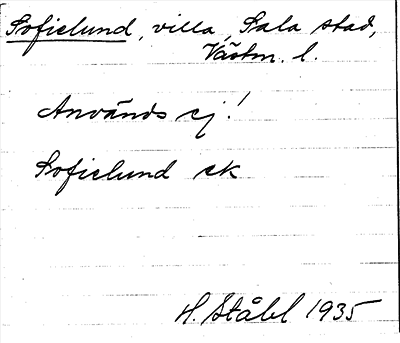 Sofielund, villa, Sala stad,
Västm. l.
Används ej!
Sofielund sk
H. Ståhl 1935